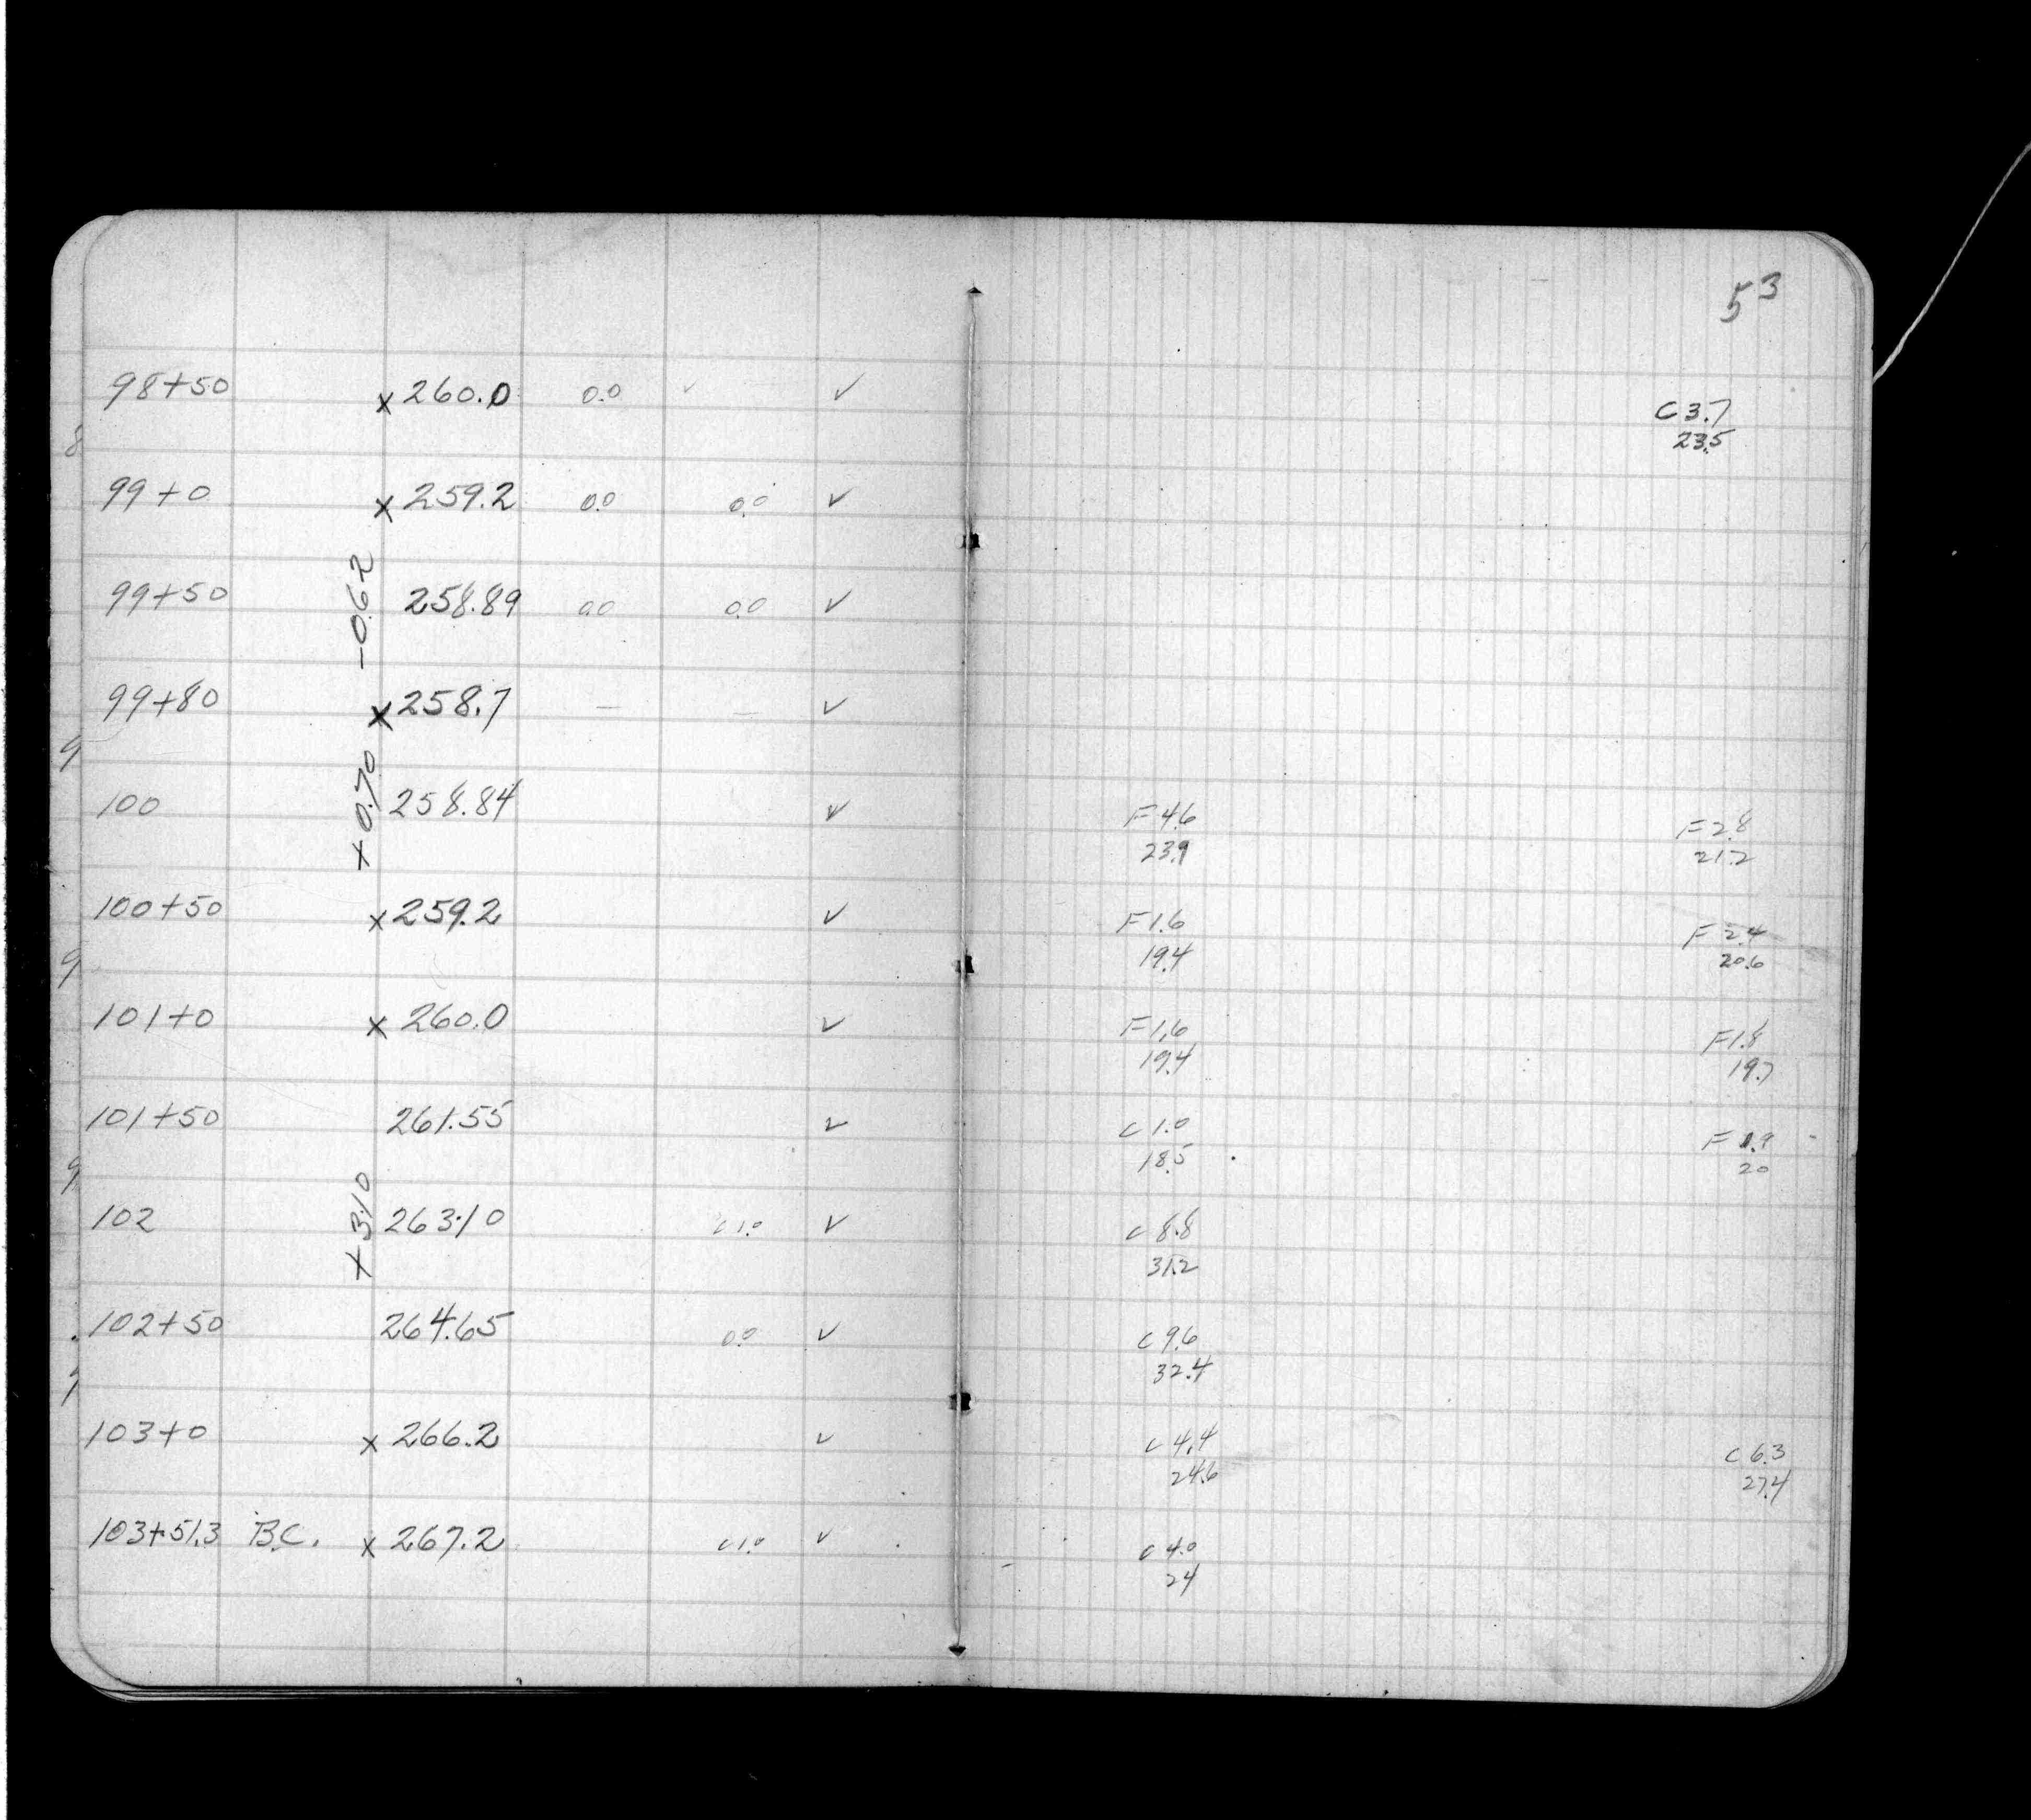 53
98+50 x 260.0 0.0 ✓ ✓ C 3.7
23.5
99+0 x 259.2 0.0 0.0 ✓
-0.62
99+50 258.89 0.0 0.0 ✓
99+80 x 258.7 — — ✓
+0.70
100 258.84 ✓ F 4.6 F 2.8
23.9 21.2
100+50 x 259.2 ✓ F 1.6 F 2.4
19.4 20.6
101+0 x 260.0 ✓ F 1.6 F 1.8
19.4 19.7
101+50 261.55 ✓ C 1.0 F
18.5 20
+3.10
102 263.10 C 1.0 ✓ C 8.8
31.2
102+50 264.65 0.0 ✓ C 9.6
32.4
103+0 x 266.2 ✓ C 4.4 C 6.3
24.6 27.4
103+51.3 B.C. x 267.2 C 1.0 ✓ C 4.0
24